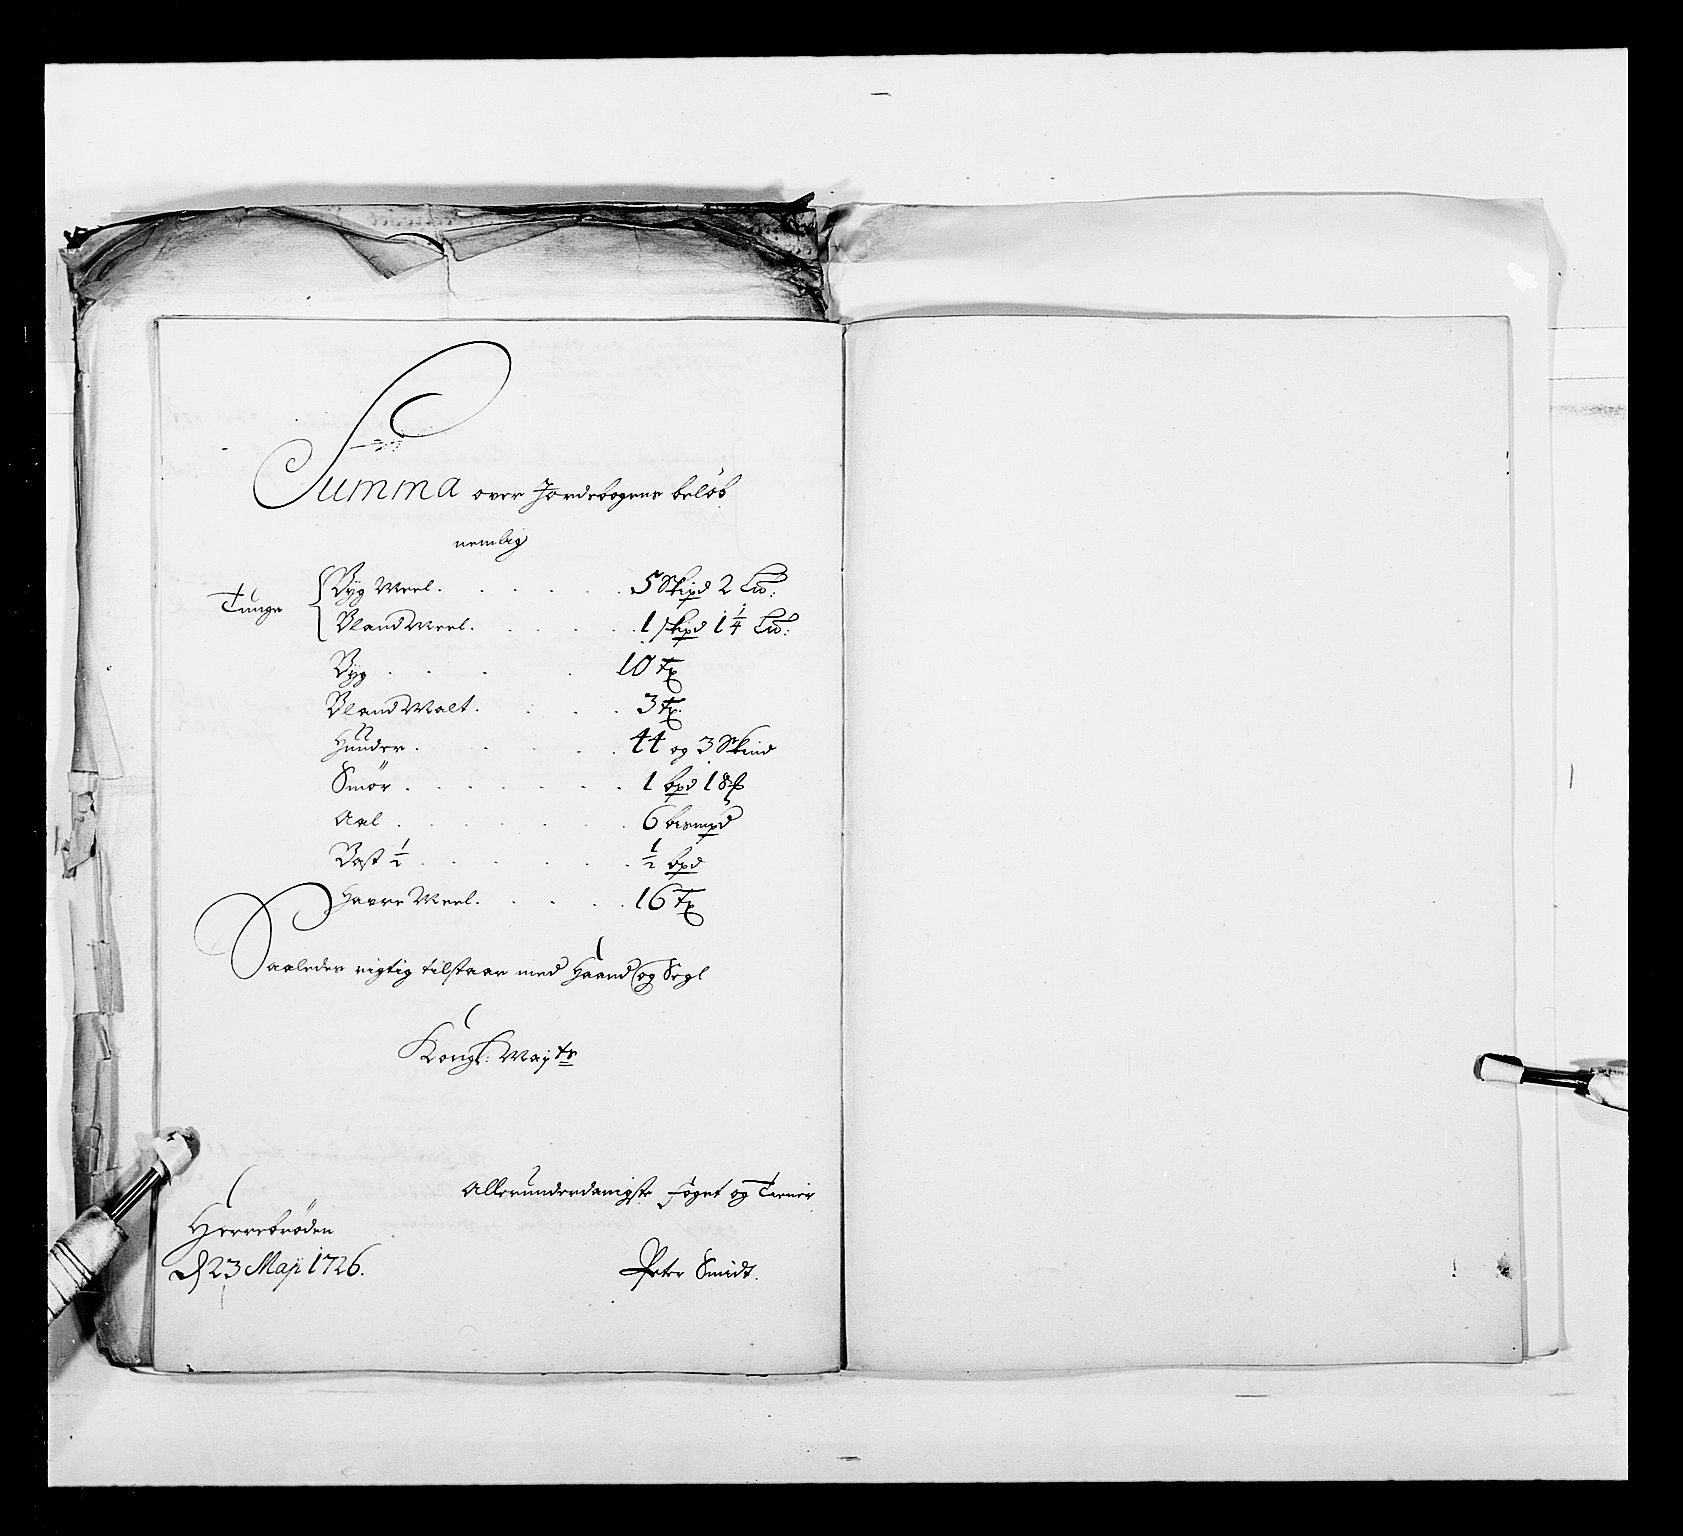 Summa over Jordebogens beløb
nemlig
Tunge { Byg Meel. . . . . . 5 Skpd 2 L℔:
Bland Meel. . . . . 1 skpd 1 1/4 L℔:
Byg . . . . 10 tr
Bland Malt. . . . 3 tr.
Huuder . . . . . 44 og 3 Skind
Smör . . . . . . . 1 bpd 18 ℔
Aal . . . . . . 6 bismpd
Bast 1/2 . . . . . . 1/2 bpd
Havre Meel. . . . . 16 tr
Saaledes rigtig tilstaar med Haand og Segl
Kongl: Mayts
Allerunderdanigste foget og Tienner
Herrebröden
d 23 Maji 1726.
Peter Smidt.